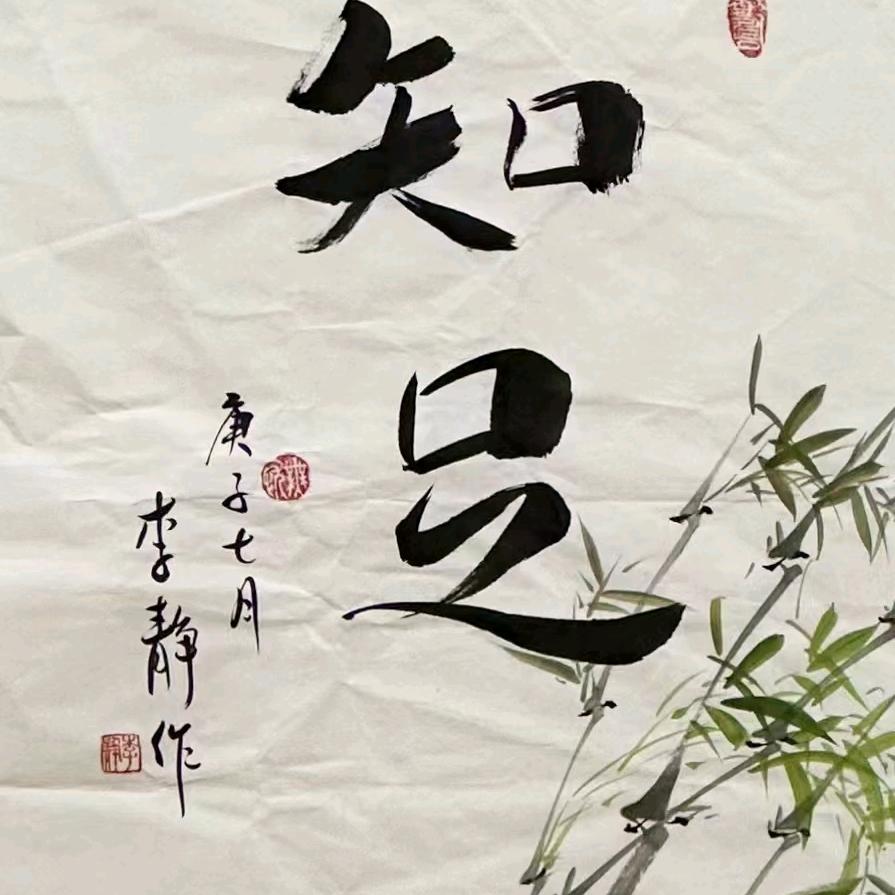 知足
庚子七月
李静作